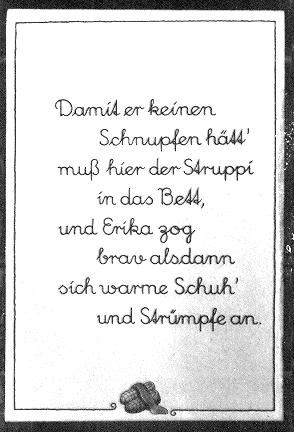 Damit er keinen
Schnupfen hätt'
muß hier der Struppi
in das Bett,
und Erika zog
brav alsdann
sich warme Schuh'
und Strümpfe an.